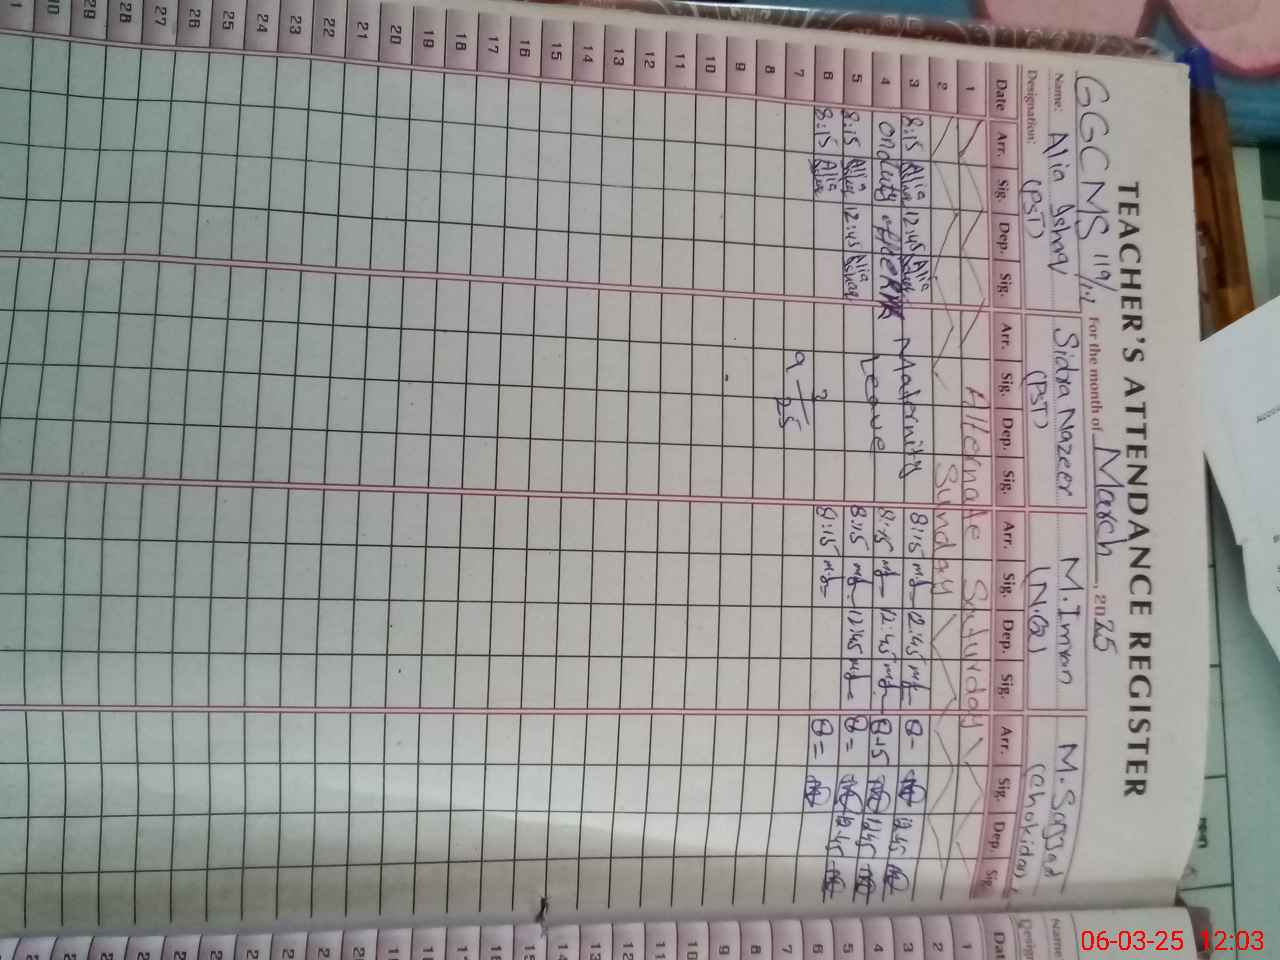 TEACHER'S ATTENDANCE REGISTER
GGCMS 119/ For the month of March, 2025
Name: Alia Ishaq Sidra Nazeer M. Imran M. Sajjad
Designation: (PST) (PST) (N.Q) (Chokidar)
Date Arr. Sig. Dep. Sig. Arr. Sig. Dep. Sig. Arr. Sig. Dep. Sig. Arr. Sig. Dep. Sig.
1 Alternade Saturday
2 Sunday
3 8:15 Alia 12:45 Alia Maternity 8:15 12:45 8= 12:45
4 on duty Leave 8:15 12:45 8:15 12:45
5 8:15 Alia Ishaq 12:45 Alia Ishaq 8:15 12:45 8= 12:45
6 8:15 Alia Ishaq 8:15 8=
7
8
9
10
11
12
13
14
15
16
17
18
19
20
21
22
23
24
25
26
27
28
29
Name
Dat
1
2
3
4
5
6
7
8
9
10
06-03-25 12:03